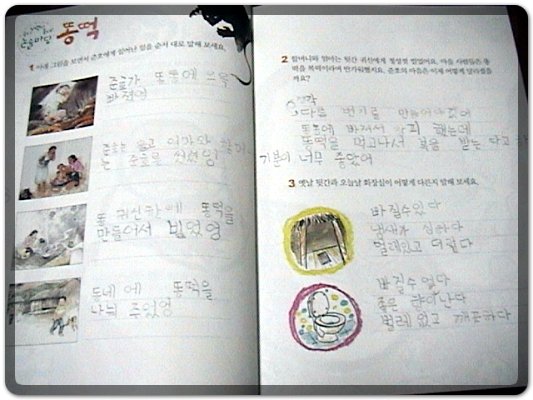 똥떡
1 아래 그림을 보면서 준호에게 일어난 일을 순서 대로 말해 보세요.
준호가 똥통에 쑤욱
빠졌엉
준호는 울고 엄마와 할머
는 준호를 씻겼엉
똥 귀신한테 똥떡을
만들어서 빌었엉
동네 에 똥떡을
나눠 주었엉
2 할머니와 엄마는 뒷간 귀신에게 정성껏 빌었어요. 마을 사람들은 똥
떡을 복떡이라며 반가워했지요. 준호의 마음은 이제 어떻게 달라졌을
까요?
똥통에 빠져서 창피 했는데
똥떡을 먹고나서 복을 받는 다고 하
기분이 너무 좋았어
3 옛날 뒷간과 오늘날 화장실이 어떻게 다른지 말해 보세요.
빠질수있다
냄새가 심하다
벌레있고 더럽다
빠질수 없다
좋은 향이난다
벌레 없고 깨끗하다